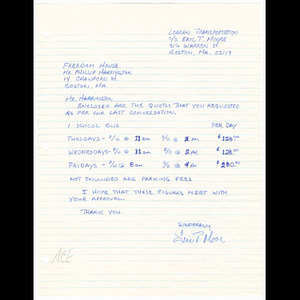 LORRAN TRANSPORTATION
C/O ERIC T. MOORE
816 WARREN ST
BOSTON, MA. 02119
FREEDOM HOUSE
MR. PHILLIP HARRINGTON
14 CRAWFORD ST.
BOSTON, MA.
MR. HARRINGTON
ENCLOSED ARE THE QUOTES THAT YOU REQUESTED
AS PER OUR LAST CONVERSATION.
1 SCHOOL BUS PER DAY
TUESDAYS - P/U @ 11 AM D/O @ 2 PM
WEDNESDAYS - P/U @ 11 AM D/O @ 2 PM
FRIDAYS - P/U @ 8 AM D/O @ 4 PM
NOT INCLUDED ARE PARKING FEES
I HOPE THAT THESE FIGURES MEET WITH
YOUR APPROVAL.
THANK YOU.
SINCERELY
Eric T. Moore
ACE